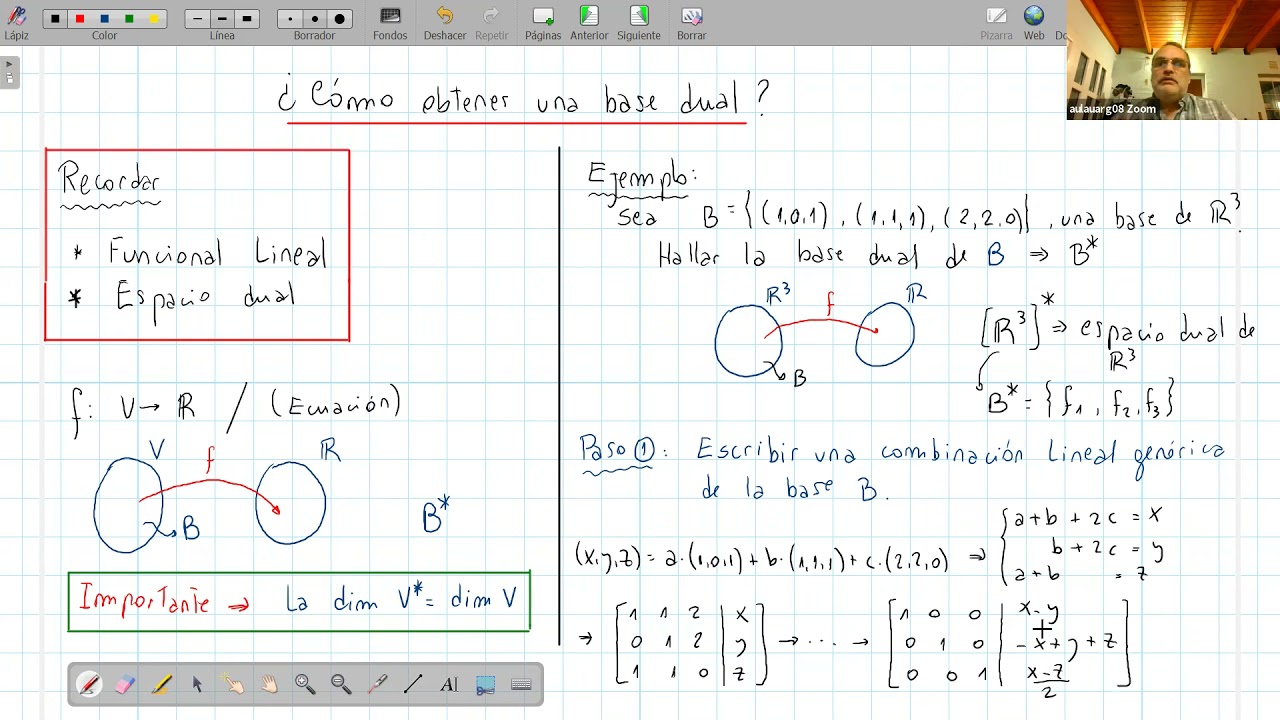 Lápiz
Color
Línea
Borrador
Fondos
Deshacer
Repetir
Páginas
Anterior
Siguiente
Borrar
Pizarra
Web
aulauarg08 Zoom
¿Cómo obtener una base dual?
Recordar
* Funcional Lineal
* Espacio dual
f: V→ ℝ / (Ecuación)
V f ℝ
B B*
Importante ⇒ La dim V* = dim V
Ejemplo:
Sea B = {(1,0,1), (1,1,1), (2,2,0)}, una base de ℝ³.
Hallar la base dual de B ⇒ B*
ℝ³ f ℝ
B
[ℝ³]* ⇒ espacio dual de
ℝ³
B* = {f₁, f₂, f₃}
Paso ①: Escribir una combinación Lineal genérica
de la base B.
(x,y,z) = a·(1,0,1) + b·(1,1,1) + c·(2,2,0) ⇒
a + b + 2c = x
b + 2c = y
a + b = z
⇒ [1 1 2 | x
0 1 2 | y
1 1 0 | z] → ... →
[1 0 0 | x-y
0 1 0 | -x+y+z
0 0 1 | x-z/2]
+
AI